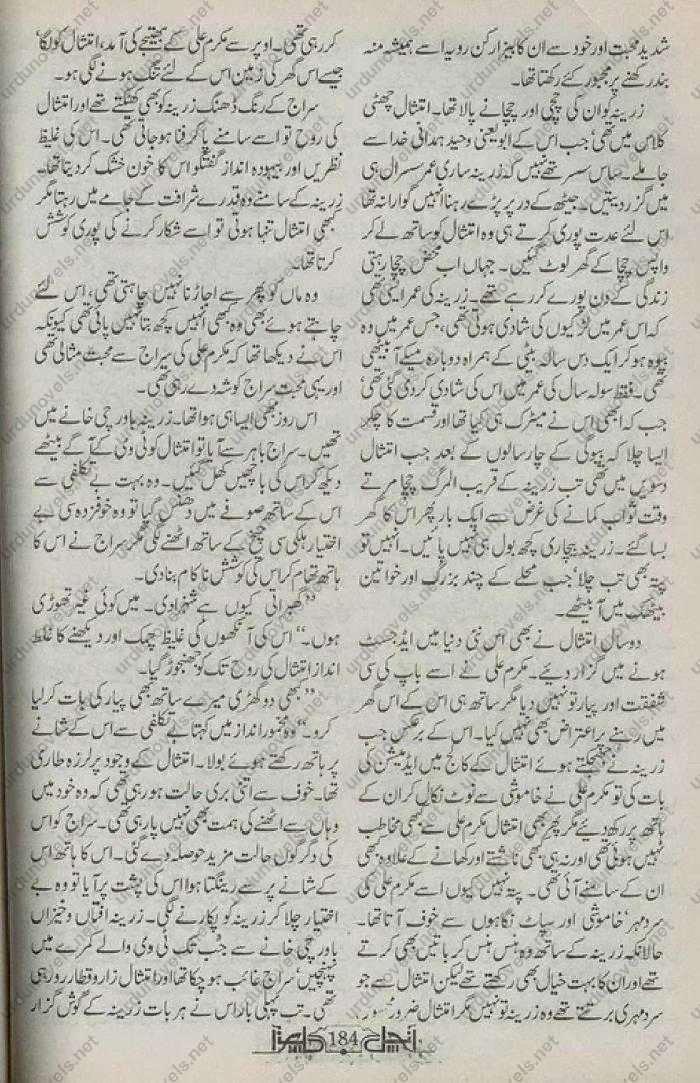 شدید محبت اور خود سے ان کا بیزار کن رویہ اسے ہمیشہ منہ
بند رکھنے پر مجبور کئے رکھتا تھا۔
زرینہ کو ان کی چچی اور چچا نے پالا تھا۔ امتثال چھٹی
کلاس میں تھی جب اس کے ابو یعنی وحید ہمدانی خدا سے
جا ملے۔ ساس سسر تھے نہیں کہ زرینہ ساری عمر سسرال ہی
میں گزار دیتیں۔ جیٹھ کے در پر پڑے رہنا انہیں گوارا نہ تھا
اس لئے عدت پوری کرتے ہی وہ امتثال کو ساتھ لے کر
واپس چچا کے گھر لوٹ گئیں۔ جہاں اب محض چچا رہتی
زندگی کے دن پورے کر رہے تھے۔ زرینہ کی عمر ایسی تھی
کہ اس عمر میں لڑکیوں کی شادی ہوتی تھی، جس عمر میں وہ
بیوہ ہو کر ایک دس سالہ بیٹی کے ہمراہ دوبارہ میکے آ بیٹھی
تھی۔ فقط سولہ سال کی عمر میں اس کی شادی کر دی گئی تھی
جب کہ ابھی اس نے میٹرک ہی کیا تھا اور قسمت کا چکر
ایسا چلا کہ بیوگی کے چار سالوں کے بعد جب امتثال
دسویں میں تھی تب زرینہ کے قریب المرگ چچا مرتے
وقت ثواب کمانے کی غرض سے ایک بار پھر اس کا گھر
بسا گئے۔ زرینہ بیچاری کچھ بول ہی نہیں پائیں۔ انہیں تو
پتہ بھی تب چلا جب محلے کے چند بزرگ اور خواتین
بیٹھک میں آ بیٹھے۔
دو سال امتثال نے بھی اس نئی دنیا میں ایڈجسٹ
ہونے میں گزار دیئے۔ مکرم علی نے اسے باپ کی سی
شفقت اور پیار تو نہیں دیا مگر ساتھ ہی اس کے اس گھر
میں رہنے پر اعتراض بھی نہیں کیا۔ اس کے برعکس جب
زرینہ نے ہچکچاتے ہوئے امتثال کے کالج میں ایڈمیشن کی
بات کی تو مکرم علی نے خاموشی سے نوٹ نکال کر ان کے
ہاتھ پر رکھ دیئے مگر پھر بھی امتثال مکرم علی سے کبھی مخاطب
نہیں ہوئی تھی اور نہ ہی کبھی ناشتے اور کھانے کے علاوہ کبھی
ان کے سامنے آئی تھی۔ پتہ نہیں کیوں اسے مکرم علی کی
سرد مہر، خاموشی اور سپاٹ نگاہوں سے خوف آتا تھا۔
حالانکہ زرینہ کے ساتھ وہ ہنس ہنس کر باتیں بھی کرتے
تھے اور ان کا بہت خیال بھی رکھتے تھے لیکن امتثال سے جو
سرد مہری برتتے تھے وہ زرینہ تو نہیں مگر امتثال ضرور محسوس
کر رہی تھی۔ اوپر سے مکرم علی کے بھتیجے کی آمد، امتثال کو لگا
جیسے اس گھر کی زمین اس کے لئے تنگ ہونے لگی ہو۔
سراج کے رنگ ڈھنگ زرینہ کو بھی کھٹکتے تھے اور امتثال
کی روح تو اسے سامنے پا کر فنا ہو جاتی تھی۔ اس کی غلیظ
نظریں اور بیہودہ انداز گفتگو اس کا خون خشک کر دیتا تھا۔
زرینہ کے سامنے وہ قدرے شرافت کے جامے میں رہتا مگر
کبھی امتثال تنہا ہوتی تو اسے شکار کرنے کی پوری کوشش
کرتا تھا۔
وہ ماں کو پھر سے اجاڑنا نہیں چاہتی تھی، اس لئے
چاہتے ہوئے بھی وہ کبھی انہیں کچھ بتا نہیں پاتی تھی کیونکہ
اس نے دیکھا تھا کہ مکرم علی کی سراج سے محبت مثالی تھی
اور یہی محبت سراج کو شہ دے رہی تھی۔
اس روز بھی ایسا ہی ہوا تھا۔ زرینہ باورچی خانے میں
تھیں۔ سراج باہر سے آیا تو امتثال کو ٹی وی کے آگے بیٹھے
دیکھ کر اس کی باچھیں کھل گئیں۔ وہ بہت بے تکلفی سے
اس کے ساتھ صوفے میں دھنس گیا تو وہ خوفزدہ سی بے
اختیار ہلکی سی چیخ کے ساتھ اٹھنے لگی مگر سراج نے اس کا
ہاتھ تھام کر اس کی کوشش ناکام بنا دی۔
”گھبراتی کیوں ہے شہزادی۔ میں کوئی غیر تھوڑی
ہوں۔“ اس کی آنکھوں کی غلیظ چمک اور دیکھنے کا غلط
انداز امتثال کی روح تک کو جھنجوڑ گیا۔
”کبھی دو گھڑی میرے ساتھ بھی پیار کی بات کر لیا
کرو۔“ وہ مخمور انداز میں کہتا بے تکلفی سے اس کے شانے
پر ہاتھ رکھتے ہوئے بولا۔ امتثال کے وجود پر لرزہ طاری
تھا۔ خوف سے اتنی بری حالت ہو رہی تھی کہ وہ خود میں
وہاں سے اٹھنے کی ہمت بھی نہیں پا رہی تھی۔ سراج کو اس
کی دگرگوں حالت مزید حوصلہ دے گئی۔ اس کا ہاتھ اس
کے شانے پر سے رینگتا ہوا اس کی پشت پر آیا تو وہ بے
اختیار چلا کر زرینہ کو پکارنے لگی۔ زرینہ افتاں و خیزاں
باورچی خانے سے جب تک ٹی وی والے کمرے میں
پہنچیں، سراج غائب ہو چکا تھا اور امتثال زار و قطار رو رہی
تھی۔ تب پہلی بار اس نے ہر بات زرینہ کے گوش گزار
آنچل 184
urdunovels.net